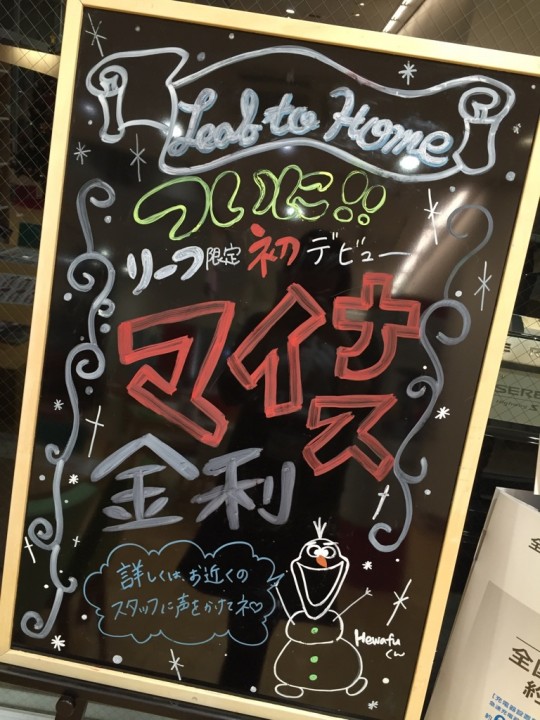 Leaf to Home
ついに!!
リーフ限定 初 デビュー
マイナス
金利
詳しくは、お近くの
スタッフに声をかけてネ♡
Hewafu
くん
SERE
全国